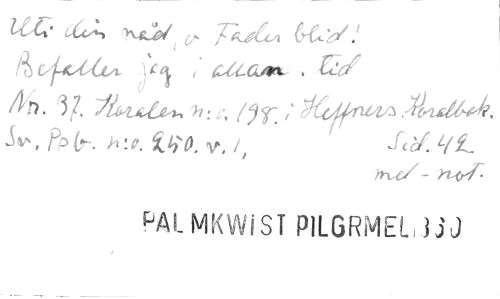 Uti din nåd, o Fader blid!
Befaller jag i allan. tid
No. 37. Koralen n:o. 198. i Heffners Koralbok.
Sv. Psb. n:o. 250. v. 1, Sid. 42
med - not.
PALMKWIST PILGRMEL. 330